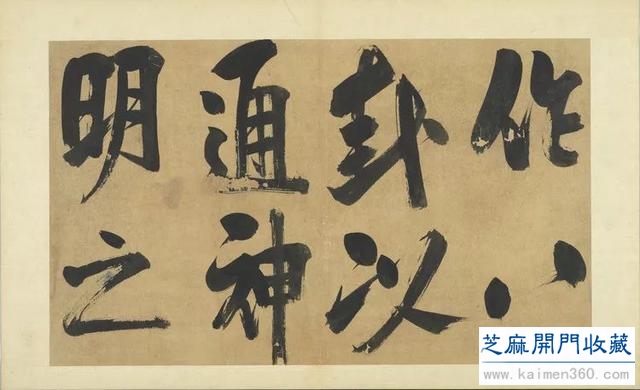 作八
卦以
通神
明之
芝麻開門收藏
www.kaimen360.com